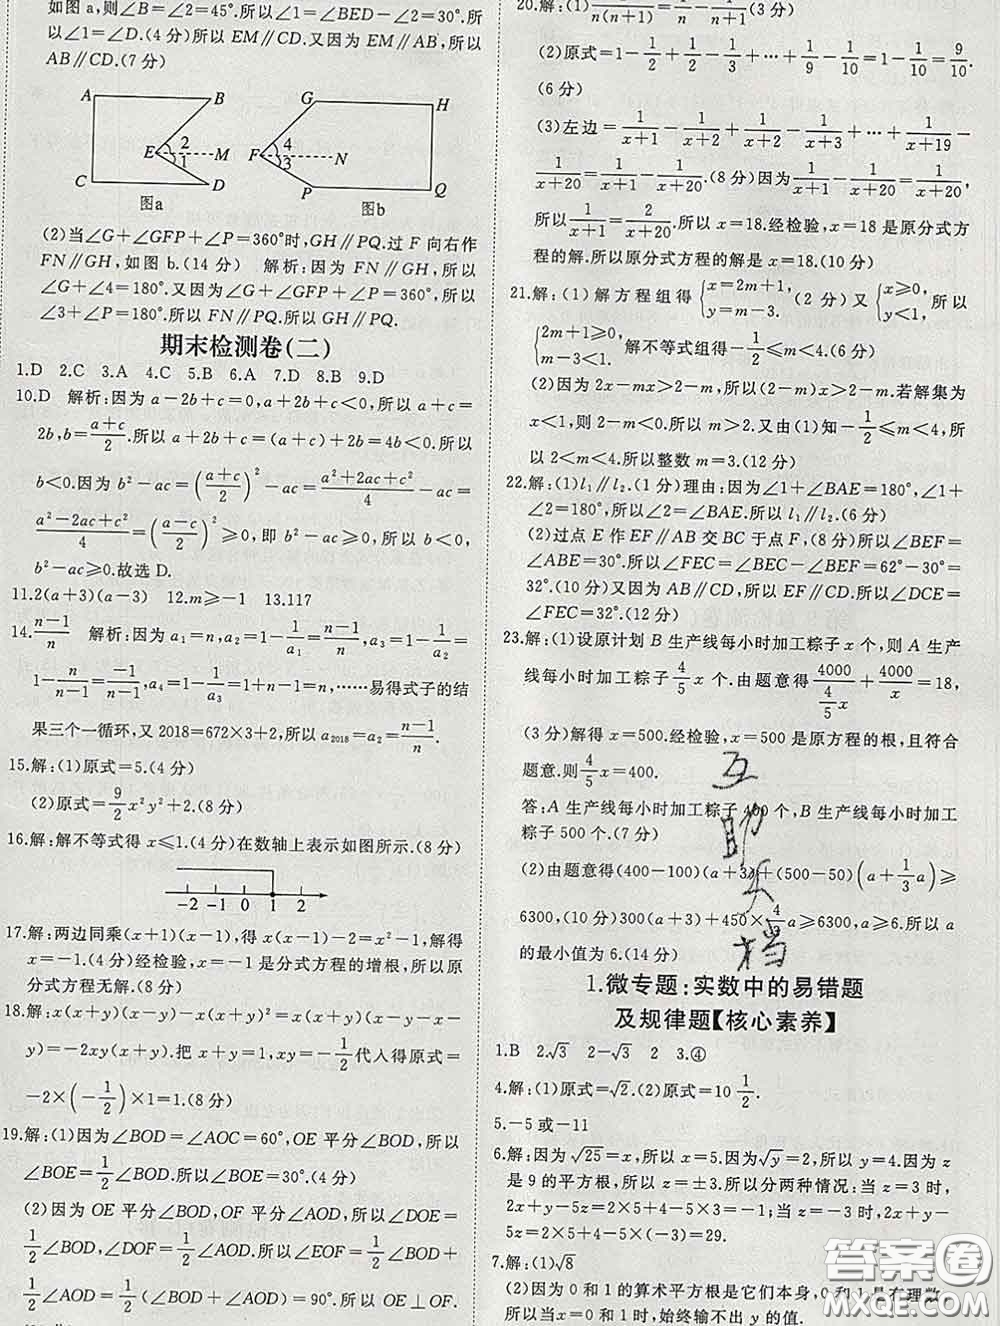 如图a,则∠2=45°.所以∠1=∠BED-∠2=30°.所
以∠1=∠D.(4分)所以EM∥CD.又因为EM∥AB,所以
AB∥CD.(7分)
A B E 2 1 M C D 图a
G H F 4 3 N P Q 图b
(2)当∠G+∠GFP+∠P=360°时,GH∥PQ.过F向右作
FN∥GH,如图b.(14分) 解析:因为FN∥GH,所以
∠G+∠4=180°.又因为∠G+∠GFP+∠P=360°,所以
∠3+∠P=180°.所以FN∥PQ.所以GH∥PQ.
期末检测卷(二)
1.D 2.C 3.A 4.C 5.B 6.A 7.D 8.B 9.D
10.D 解析:因为a-2b+c=0,a+2b+c<0,所以a+c=
2b,b=\frac{a+c}{2}.所以a+2b+c=(a+c)+2b=4b<0.所以
b<0.因为b²-ac=(\frac{a+c}{2})²-ac=\frac{a²+2ac+c²}{4}-ac=
\frac{a²-2ac+c²}{4}=(\frac{a-c}{2})²≥0,即b²-ac≥0,所以b<0,
b²-ac≥0.故选D.
11.2(a+3)(a-3) 12.m≥-1 13.117
14.\frac{n-1}{n} 解析:因为a₁=n,a₂=1-\frac{1}{a₁}=\frac{n-1}{n},a₃=1-\frac{1}{a₂}=
1-\frac{n}{n-1}=\frac{-1}{n-1},a₄=1-\frac{1}{a₃}=1+n-1=n,……易得式子的结
果三个一循环,又2018=672×3+2,所以a₂₀₁₈=a₂=\frac{n-1}{n}.
15.解:(1)原式=5.(4分)
(2)原式=\frac{9}{2}x²y²+2.(8分)
16.解:解不等式得x≤1.(4分)在数轴上表示如图所示.(8分)
-2 -1 0 1 2
17.解:两边同乘(x+1)(x-1),得x(x-1)-2=x²-1,解得
x=-1.(4分)经检验,x=-1是分式方程的增根,所以原
分式方程无解.(8分)
18.解:原式=x(x+y)(x-y)-x(x+y)²=x(x+y)(x-y-x-
y)=-2xy(x+y).把x+y=1,xy=-\frac{1}{2}代入得原式=
-2×(-\frac{1}{2})×1=1.(8分)
19.解:(1)因为∠BOD=∠AOC=60°,OE平分∠BOD,所以
∠BOE=\frac{1}{2}∠BOD.所以∠BOE=30°.(4分)
(2)因为OE平分∠BOD,OF平分∠AOD,所以∠DOE=
\frac{1}{2}∠BOD,∠DOF=\frac{1}{2}∠AOD.所以∠EOF=\frac{1}{2}∠BOD+
\frac{1}{2}∠AOD=\frac{1}{2}(∠BOD+∠AOD)=90°.所以OE⊥OF.
20.解:(1)\frac{1}{n(n+1)}=\frac{1}{n}-\frac{1}{n+1}(3分)
(2)原式=1-\frac{1}{2}+\frac{1}{2}-\frac{1}{3}+…+\frac{1}{9}-\frac{1}{10}=1-\frac{1}{10}=\frac{9}{10}.
(6分)
(3)左边=\frac{1}{x+1}-\frac{1}{x+2}+\frac{1}{x+2}-\frac{1}{x+3}+…+\frac{1}{x+19}-
\frac{1}{x+20}=\frac{1}{x+1}-\frac{1}{x+20}.(8分)因为\frac{1}{x+1}-\frac{1}{x+20}=\frac{1}{x+20},
所以\frac{1}{x+1}=\frac{2}{x+20}.所以x=18.经检验,x=18是原分式方
程的解.所以原分式方程的解是x=18.(10分)
21.解:(1)解方程组得{x=2m+1, y=m-3.(2分)又{x≥0, y<1,所以
{2m+1≥0, m-3<1. 解不等式组得-\frac{1}{2}≤m<4.(6分)
(2)因为2x-mx>2-m,所以(2-m)x>2-m.若解集为
x<1,则2-m<0,所以m>2.又由(1)知-\frac{1}{2}≤m<4,所
以2<m<4.所以整数m=3.(12分)
22.解:(1)l₁∥l₂.(1分)理由:因为∠1+∠BAE=180°,∠1+
∠2=180°,所以∠2=∠BAE.所以l₁∥l₂.(6分)
(2)过点E作EF∥AB交BC于点F,(8分)所以∠BEF=
∠ABE=30°.所以∠FEC=∠BEC-∠BEF=62°-30°=
32°.(10分)又因为AB∥CD,所以EF∥CD.所以∠DCE=
∠FEC=32°.(12分)
23.解:(1)设原计划B生产线每小时加工粽子x个,则A生产
线每小时加工粽子\frac{4}{5}x个.由题意得\frac{4000}{\frac{4}{5}x}+\frac{4000}{x}=18,
(3分)解得x=500.经检验,x=500是原方程的根,且符合
题意.则\frac{4}{5}x=400.
答:A生产线每小时加工粽子400个,B生产线每小时加工
粽子500个.(7分)
(2)由题意得(400-100)(a+3)+(500-50)(a+\frac{1}{3}a)≥
6300,(10分)300(a+3)+450×\frac{4}{3}a≥6300,a≥6.所以a
的最小值为6.(14分)
1.微专题:实数中的易错题
及规律题【核心素养】
1.B 2.√3 2-√3 2 3.④
4.解:(1)原式=√2.(2)原式=10\frac{1}{2}.
5.-5或-11
6.解:因为√25=x,所以x=5.因为√y=2,所以y=4.因为z
是9的平方根,所以z=±3.所以分两种情况:当z=3时,
2x+y-5z=2×5+4-5×3=-1;当z=-3时,2x+y
-5z=2×5+4-5×(-3)=29.
7.解:(1)√8
(2)因为0和1的算术平方根是它们本身,0和1是有理数,
所以当x=0和1时,始终输不出y的值.
答案圈
MXQE.COM